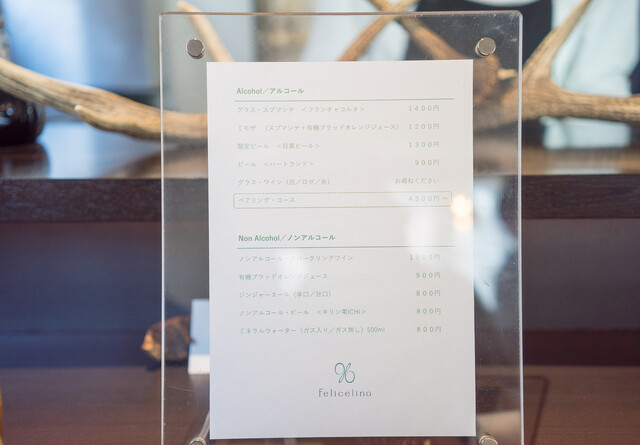 Alcohol／アルコール
グラス・スプマンテ ＜フランチャコルタ＞ 1400円
ミモザ （スプマンテ＋有機ブラッドオレンジジュース） 1200円
限定ビール ＜目黒ビール＞ 1300円
ビール ＜ハートランド＞ 900円
グラス・ワイン（白／ロゼ／赤） お尋ねください
ペアリング・コース 4500円〜
Non Alcohol／ノンアルコール
ノンアルコール・スパークリングワイン
有機ブラッドオレンジジュース 900円
ジンジャーエール（辛口／甘口） 800円
ノンアルコール・ビール ＜キリン零ICHI＞ 800円
ミネラルウォーター（ガス入り／ガス無し）500ml 800円
Felicelina